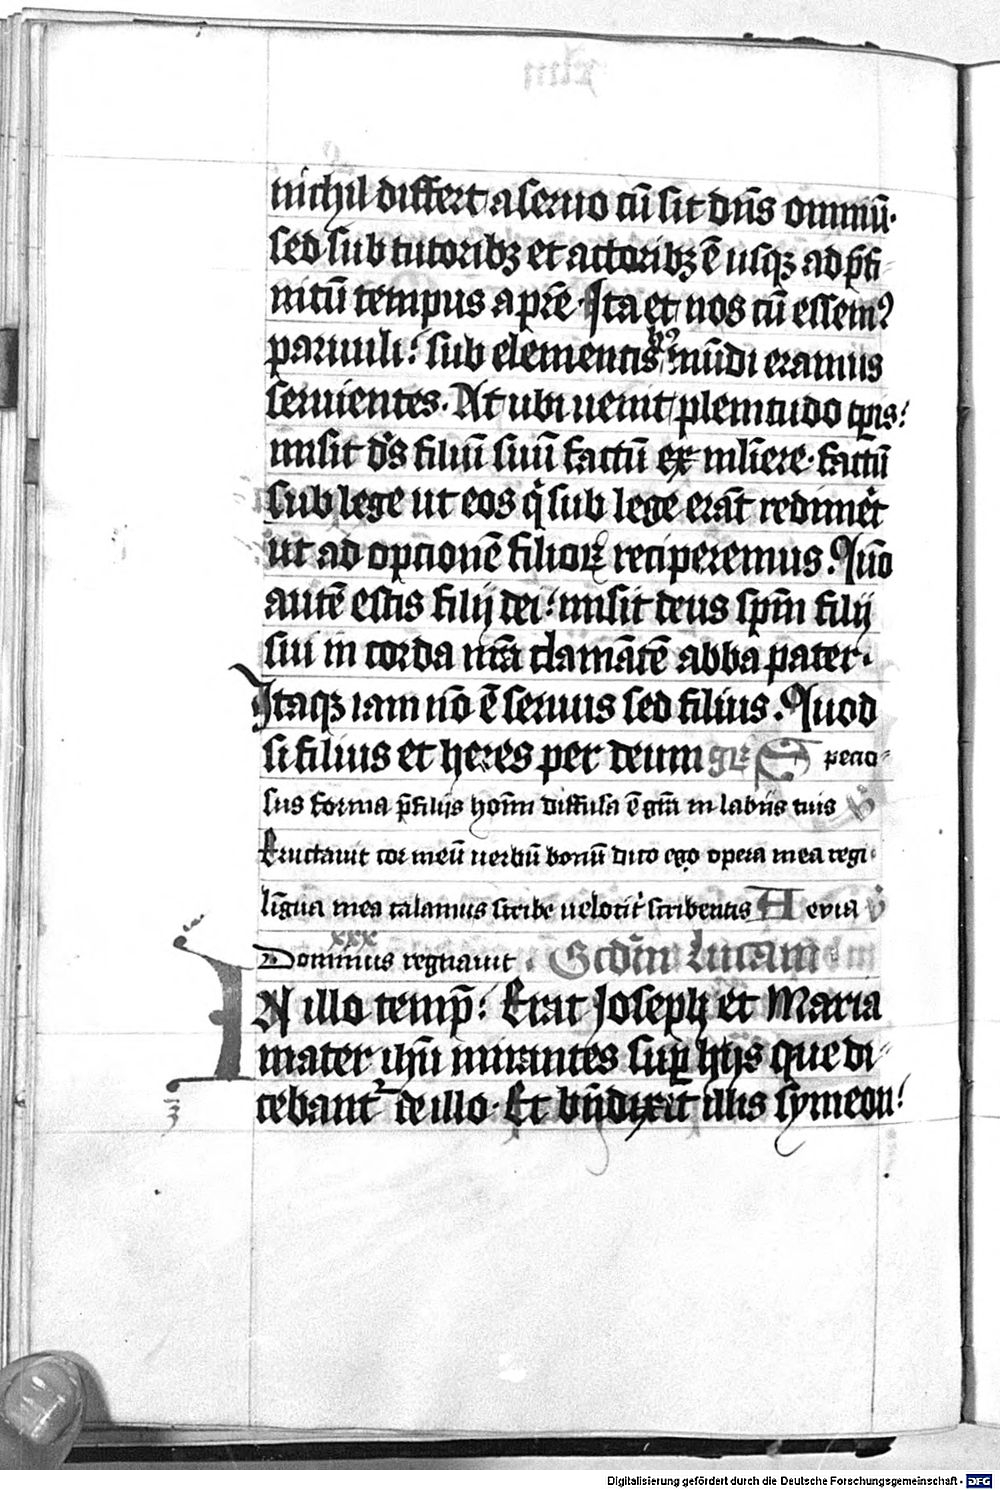 nichil differt a seruo cū sit dn̄s omniū·
sed sub tutoribꝫ et actoribꝫ ē usqꝫ ad p̄fi
nitū tempus a pr̄e · Ita et nos cū essemꝰ
paruuli: sub elementis hꝰ mūdi eramus
seruientes · At ubi uenit plenitudo tp̄is:
misit dꝰs filiū suū factū ex mliere · factū
sub lege ut eos q̇ sub lege erāt redimeret
ut ad opcionē filioꝝ reciperemus. Qm̄
autē estis filij dei: misit deus spm̄ filij
sui in corda nr̄a clamātē abba pater·
Itaqꝫ iam nō ē seruus sed filius. Quod
si filius et heres per deum gr̄ Specio
sus forma p̄ filijs hoīm diffusa ē gr̄a in labiis tuis
Eructauit cor meū uerbū bonū dico ego opera mea regi·
lingua mea calamus scribe uelocit᷑ scribentis A euia v̇
Dominus regnauit · Scdm̄ Lucam
xxx
IN illo temp̄: Erat Joseph et Maria
mater ihū mirantes sup̄ hijs que di
cebant᷑ de illo · Et bn̄dixit illis symeon:
Digitalisierung gefördert durch die Deutsche Forschungsgemeinschaft - DFG